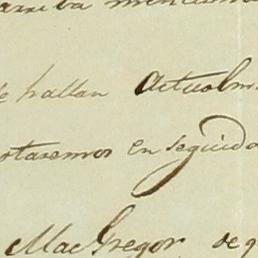 arriba menciona
se hallan Actualm
staremos en seguida
MacGregor de